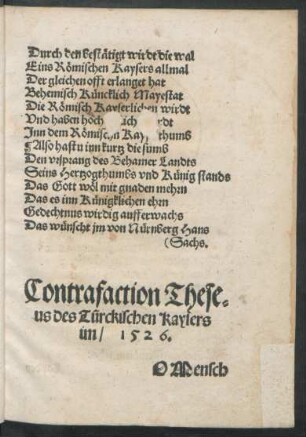 Durch den bestätigt wirdt die wal
Eins Römischen Kaysers allmal
Der gleichen offt erlanget hat
Behemisch Küncklich Mayestat
Die Römisch Kayserlichen wirdt
Vnd haben hoch
Inn dem Römischen
Also hastu inn kurtz die summ
Den vrsprang des Behamer Landts
Seins Hertzogthumbs vnd Künig stands
Das Gott wöl mit gnaden mehrn
Das es inn Künigklichen ehrn
Gedechtnus wirdig auff erwachs
Das wünscht jm von Nürnberg Hans
(Sachs.
Contrafaction These-
us des Türckischen Kaysers
im/ 1526.
O Mensch